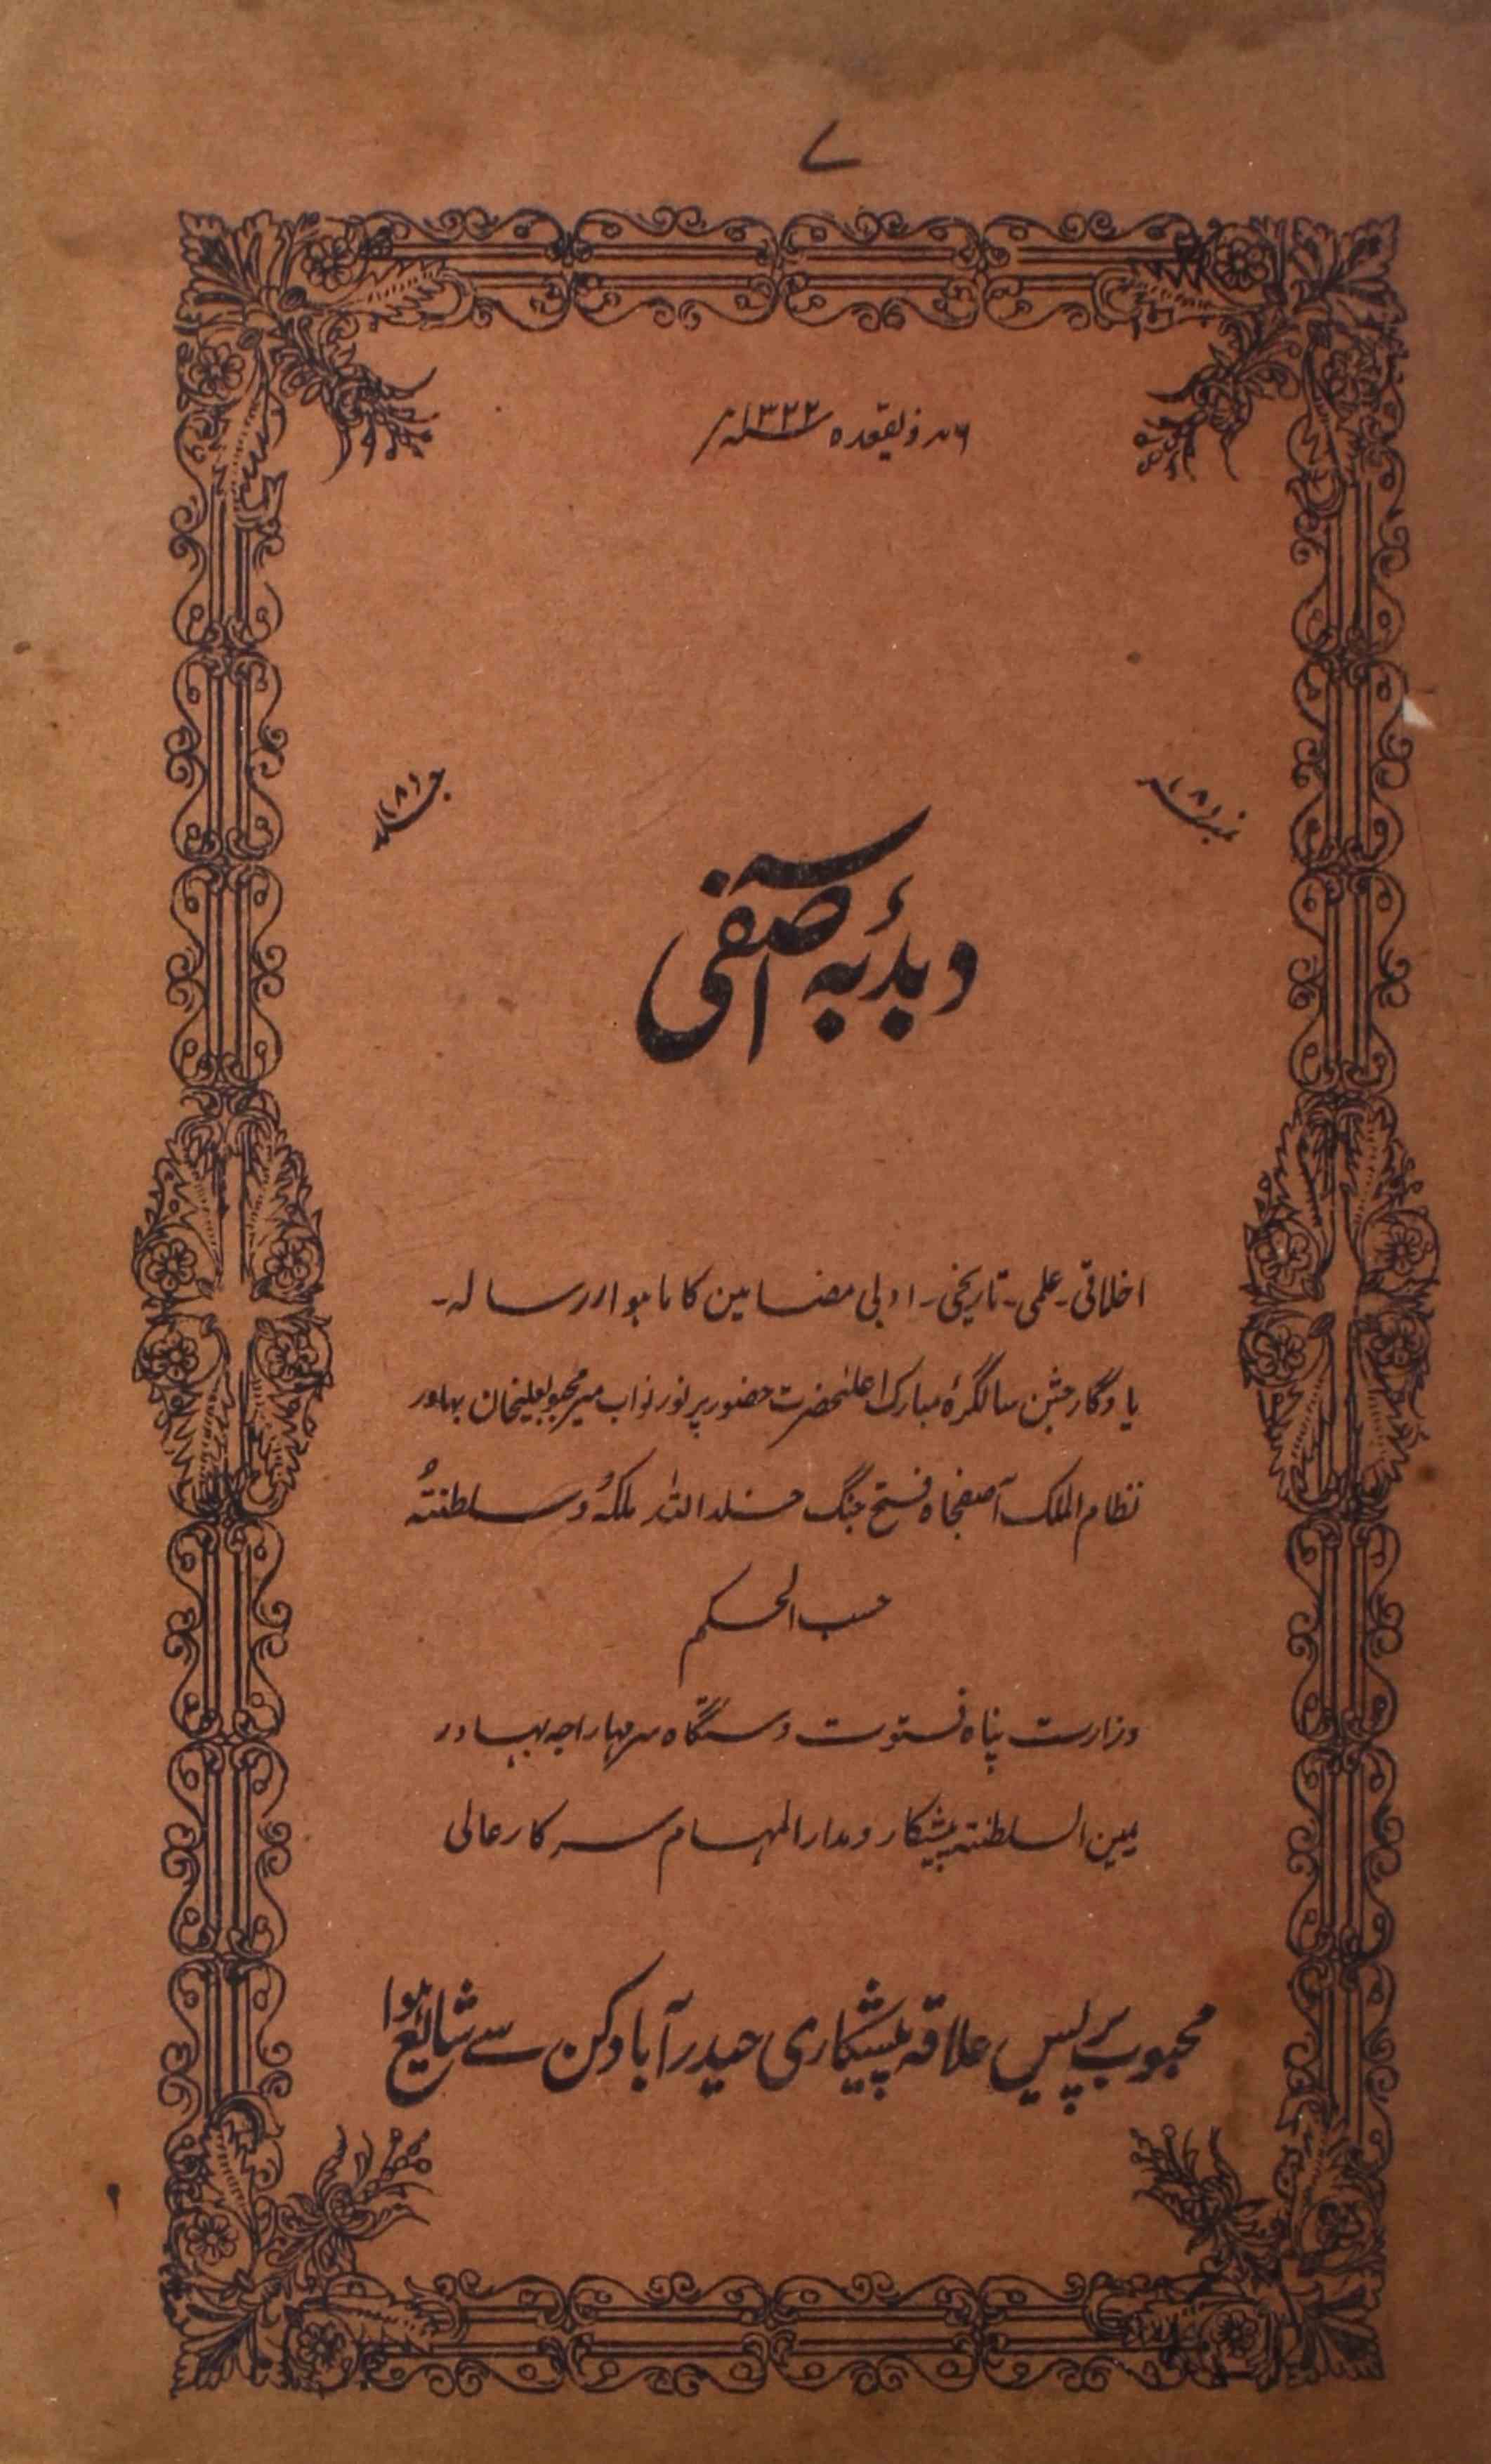 ۷
۶ ذیقعدہ ۱۳۲۲ھ
نمبر (۸)
جلد (۸)
دبدبۂ آصفی
اخلاقی۔ علمی۔ تاریخی۔ ادبی مضامین کا ماہوار رسالہ۔
یادگار جشن سالگرۂ مبارک اعلیٰحضرت حضور پرنور نواب میر محبوبعلیخان بہادر
نظام الملک آصفجاہ فتح جنگ خلد اللہ ملکہٗ وسلطنتہٗ
حسب الحکم
وزارت پناہ فتوت دستگاہ سر مہاراجہ بہادر
یمین السلطنتہ پیشکار و مدارالمہام سرکار عالی
محبوب پریس علاقہ پیشکاری حیدرآباد دکن سے شایع ہوا